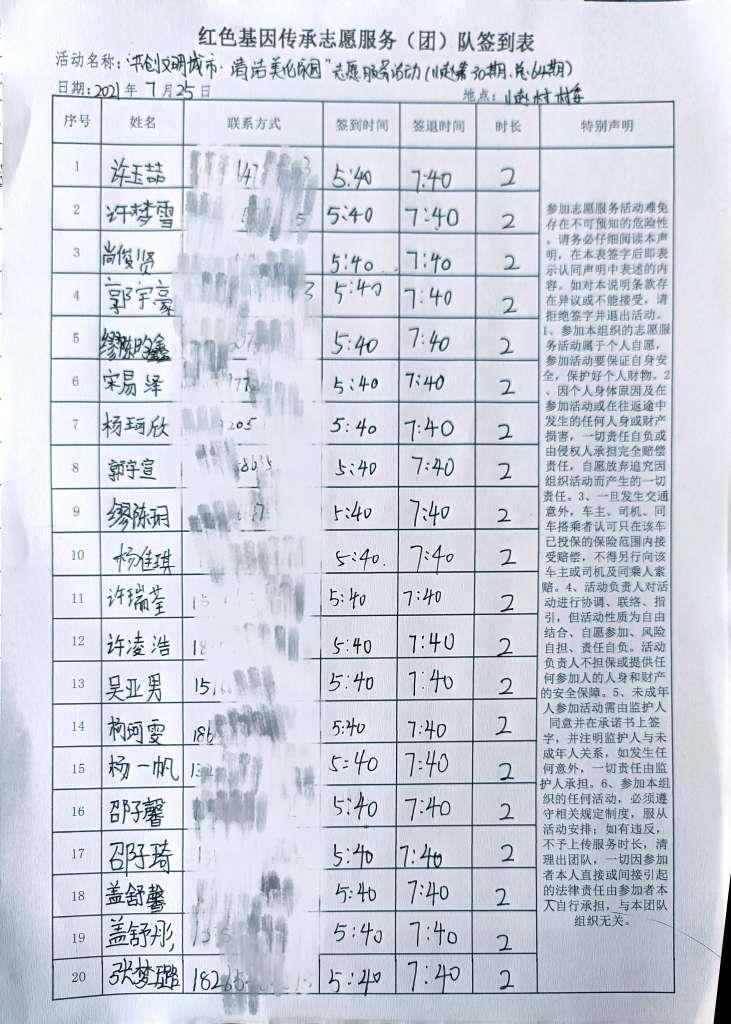 红色基因传承志愿服务（团）队签到表
活动名称："创文明城市·清洁美化家园"志愿服务活动(第30期.总64期)
日期:2021年7月25日 地点：小赵村村委
序号 姓名 联系方式 签到时间 签退时间 时长 特别声明
1 许玉喆 5:40 7:40 2
2 许梦雪 5:40 7:40 2
3 尚俊贤 5:40 7:40 2
4 郭宇豪 5:40 7:40 2
5 缪陈昀鑫 5:40 7:40 2
6 宋易泽 5:40 7:40 2
7 杨珂欣 5:40 7:40 2
8 郭宇宣 5:40 7:40 2
9 缪陈玥 5:40 7:40 2
10 杨佳琪 5:40 7:40 2
11 许瑞荃 5:40 7:40 2
12 许凌浩 5:40 7:40 2
13 吴亚男 5:40 7:40 2
14 柯珂雯 5:40 7:40 2
15 杨一帆 5:40 7:40 2
16 邵子馨 5:40 7:40 2
17 邵子琦 5:40 7:40 2
18 盖舒馨 5:40 7:40 2
19 盖舒彤 5:40 7:40 2
20 张梦璐 5:40 7:40 2
参加志愿服务活动难免
存在不可预知的危险性
。请务必仔细阅读本声
明，在本表签字后即表
示认同声明中表述的内
容。如对本说明条款存
在异议或不能接受，请
拒绝签字并退出活动。
1、参加本组织的志愿服
务活动属于个人自愿，
参加活动要保证自身安
全，保护好个人财物。2
、因个人身体原因及在
参加活动或在往返途中
发生的任何人身或财产
损害，一切责任自负或
由侵权人承担完全赔偿
责任，自愿放弃追究因
组织活动而产生的一切
责任。3、一旦发生交通
意外，车主、司机、同
车搭乘者认可只在该车
已投保的保险范围内接
受赔偿，不得另行向该
车主或司机及同乘人索
赔。4、活动负责人对活
动进行协调、联络、指
引，但活动性质为自由
结合、自愿参加、风险
自担、责任自负。活动
负责人不担保或提供任
何参加人的人身和财产
的安全保障。5、未成年
人参加活动需由监护人
同意并在承诺书上签
字，并注明监护人与未
成年人关系，如发生任
何意外，一切责任由监
护人承担。6、参加本组
织的任何活动，必须遵
守相关规定制度，服从
活动安排；如有违反，
不予上传服务时长，清
理出团队，一切因参加
者本人直接或间接引起
的法律责任由参加者本
人自行承担，与本团队
组织无关。